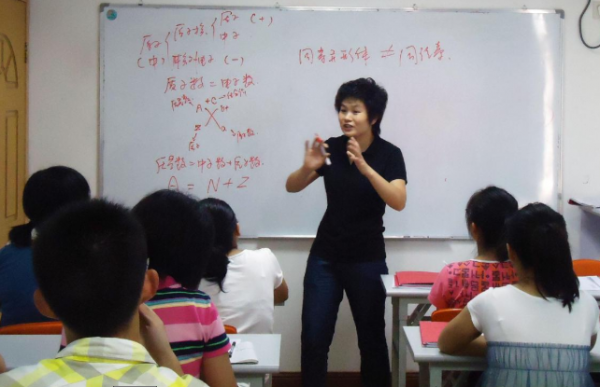 原子 原子核 质子 (+)
中子
(中) 核外电子 (-)
同素异形体 ≠ 同位素
质子数 = 电子数
A
质量数 = 中子数 + 质子数
A = N + Z